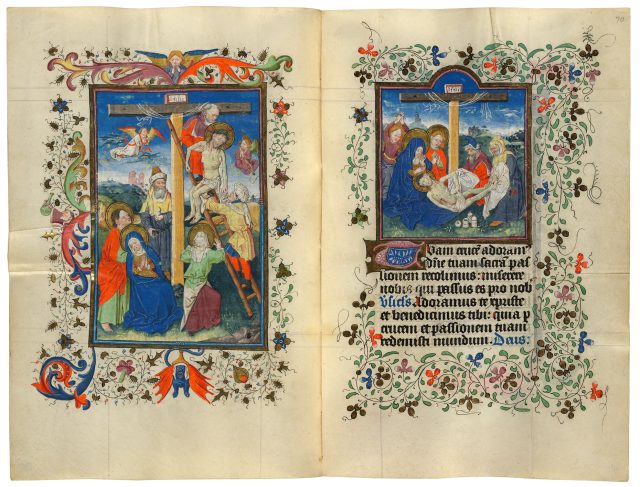 70
Tuam crucē adoram
dñe tuam sacrā pas
sionem recolimus: miserere
nobis qui passus es pro nob
Adoramus te xpriste
et benedicimus tibi: quia p
crucem et passionem tuam
redemisti mundum. Deus: